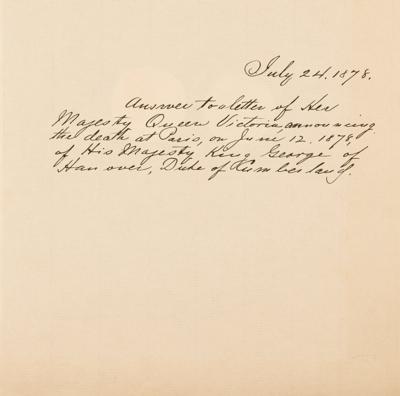 July 24, 1878.
Answer to a letter of Her
Majesty Queen Victoria, announcing
the death at Paris, on June 12, 1878,
of His Majesty King George of
Hanover, Duke of Kumberland.